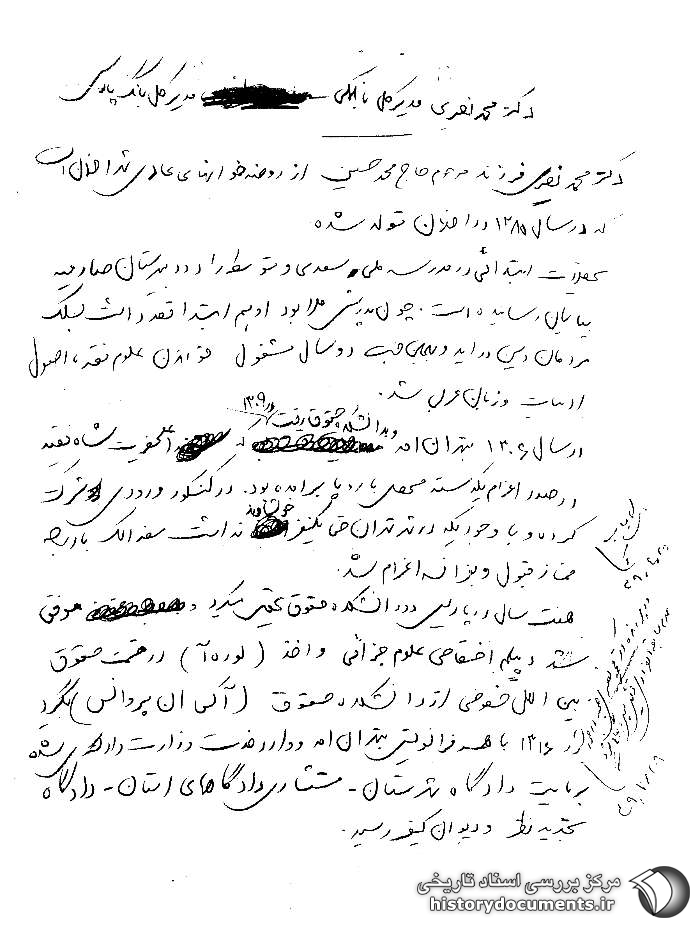 دکتر محمد نصیری مدیر کل بانک ملی مدیر کل بانک پارس
دکتر محمد نصیری فرزند مرحوم حاج محمد حسین از روضه خوانهای عادی
که در سال ۱۲۸۵ در تولد شده
تحصیلات ابتدائی در مدرسه ملی سعدی و متوسطه را در دبیرستان صارمیه
بپایان رسانیده است. چون پدرش ملا بود او هم ابتدا قصد داشت بسلک
مردمان دین درآید و بهمین جهت دو سال مشغول خواندن علوم فقه، اصول
ادبیات و زبان عربی شد.
در سال ۱۳۰۶ بتهران آمد و بدانشکده حقوق رفت در ۱۳۰۹ اعلیحضرت شاه فقید
در صدد اعزام یکدسته محصل باروپا برآمده بود. در کنکور ورودی شرکت
کرده و با وجودیکه در شهر تهران حتی یکنفر خویشاوند نداشت معذالک بادرجه
ممتاز قبول و بفرانسه اعزام شد.
هفت سال در پاریس در دانشکده حقوق تحصیل میکرد و موفق
شد دیپلم اختصاصی علوم جزائی و اخذ (لوره آ) در قسمت حقوق
بین الملل خصوصی از دانشکده حقوق (آکس ان پروانس) بگیرد
در ۱۳۱۶ با همسر فرانسویش بتهران آمد و وارد خدمت وزارت دادگستری شده
بریاست دادگاه شهرستان - مستشاری دادگاههای استان - دادگاه
تجدید نظر و دیوان کیفر رسید.
مرکز بررسی اسناد تاریخی
historydocuments.ir